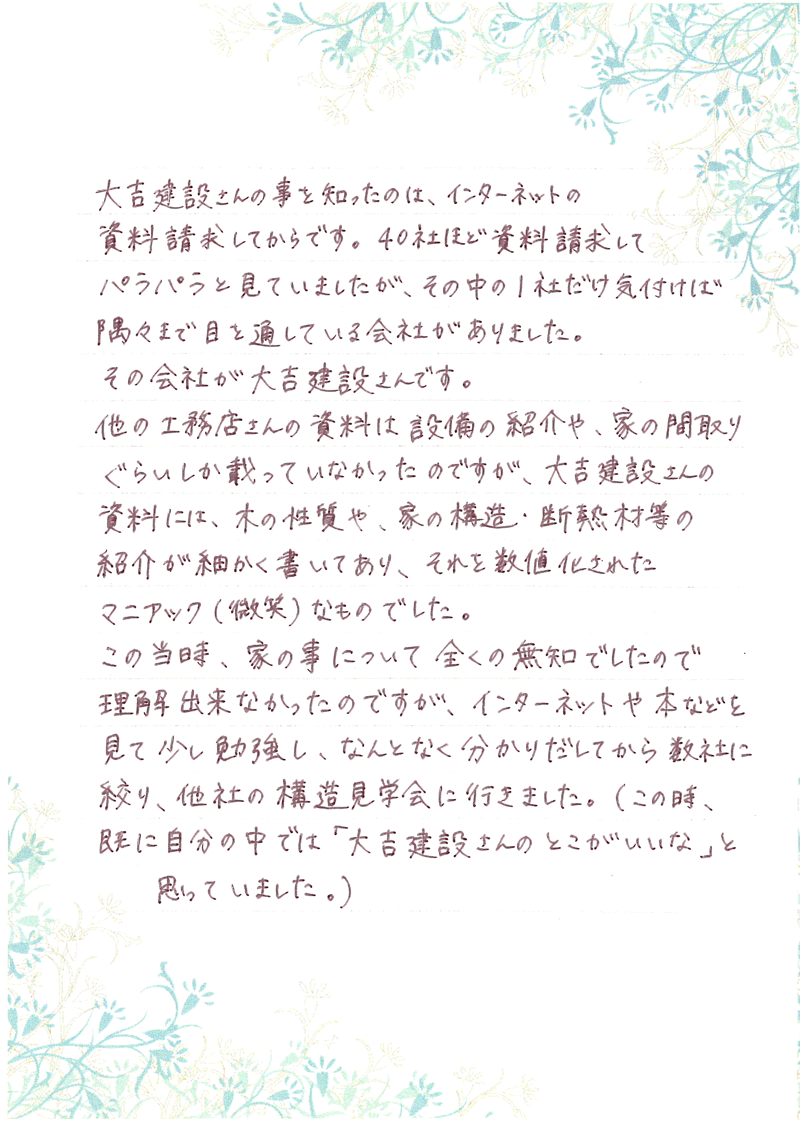 大吉建設さんの事を知ったのは、インターネットの
資料請求してからです。40社ほど資料請求して
パラパラと見ていましたが、その中の1社だけ気付けば
隅々まで目を通している会社がありました。
その会社が大吉建設さんです。
他の工務店さんの資料は設備の紹介や、家の間取り
ぐらいしか載っていなかったのですが、大吉建設さんの
資料には、木の性質や、家の構造・断熱材等の
紹介が細かく書いてあり、それを数値化された
マニアック(微笑)なものでした。
この当時、家の事について全くの無知でしたので
理解出来なかったのですが、インターネットや本などを
見て少し勉強し、なんとなく分かりだしてから数社に
絞り、他社の構造見学会に行きました。(この時、
既に自分の中では「大吉建設さんのとこがいいな」と
思っていました。)